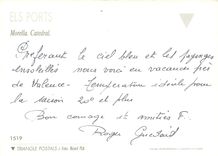 ELS PORTS
Morella. Catedral.
Préférant le ciel bleu et les paysages
ensoleillés nous voici en vacances près
de Valence - Température idéale pour
la saison 20° et plus
Bon courage et amitiés F.
Roger
1519
TRIANGLE POSTALS